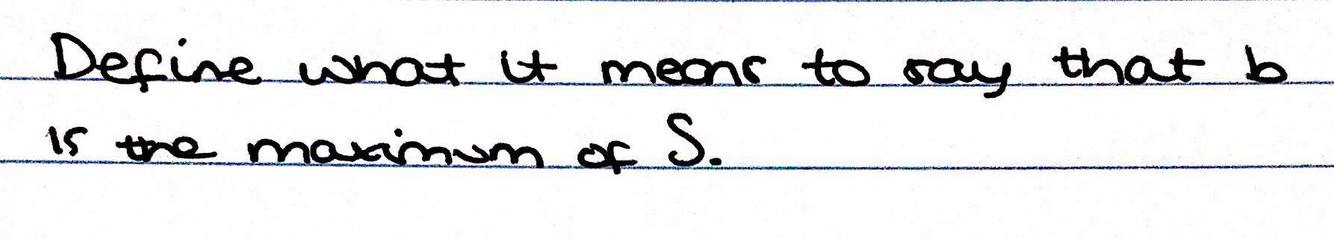 Define what it means to say that b
is the maximum of S.